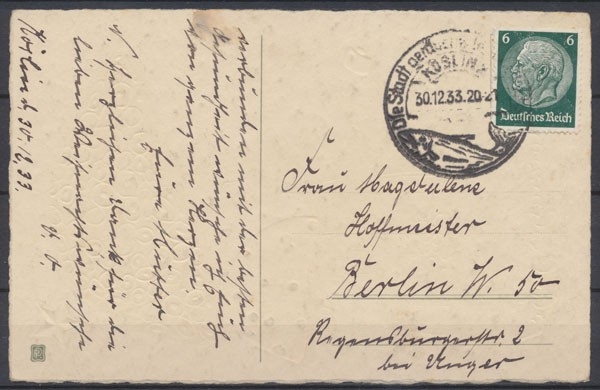 verbunden mit den besten
Gesundheit wünsche ich Euch
von ganzem Herzen.
Eure Mutter
N. S. herzlichen Dank für die
lieben Weihnachtswünsche
Köslin d. 30.12.33.
Die Stadt
KÖSLIN
30.12.33.20-21
6 6
Deutsches Reich
Frau Magdalene
Hoffmeister
Berlin W. 50
Regensburgerstr. 2
bei Unger